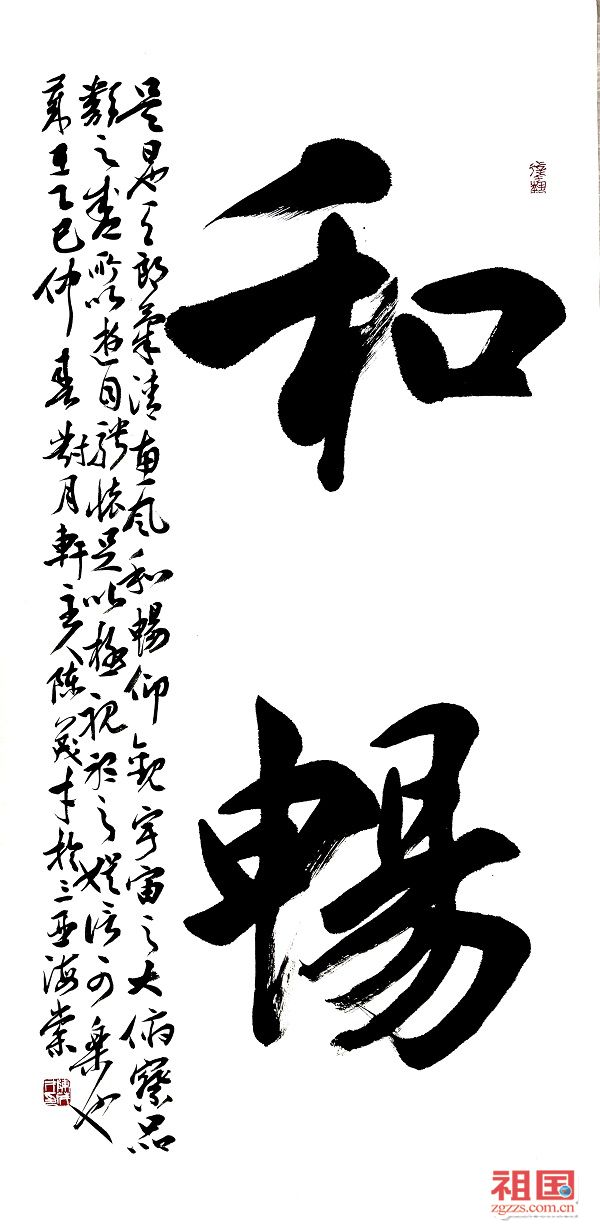 和暢
是日也天朗氣清惠風和暢仰觀宇宙之大俯察品
類之盛所以遊目騁懷足以極視聽之娛信可樂也
歲在乙巳仲春對月軒主人陳茂才於三亞海棠
祖国
zgzzs.com.cn